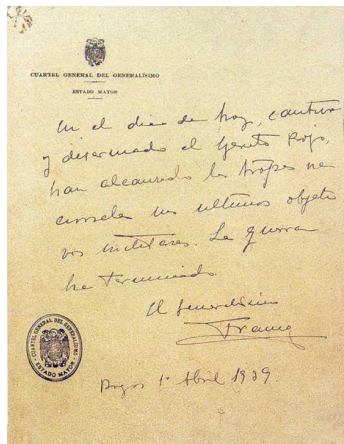 CUARTEL GENERAL DEL GENERALÍSIMO
ESTADO MAYOR
En el día de hoy, cautivo
y desarmado el Ejército Rojo,
han alcanzado las tropas na
cionales sus ultimos objeti
vos militares. La guerra
ha terminado.
El Generalísimo
Franco
Burgos 1º Abril 1939.
CUARTEL GENERAL DEL GENERALÍSIMO
ESTADO MAYOR